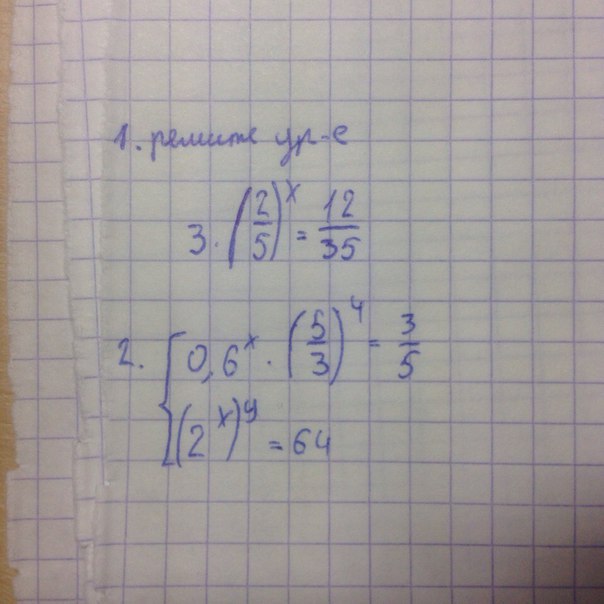 1. решите ур-е
3 · (2/5)^x = 12/35
2. { 0,6^x · (5/3)^4 = 3/5
(2^x)^y = 64